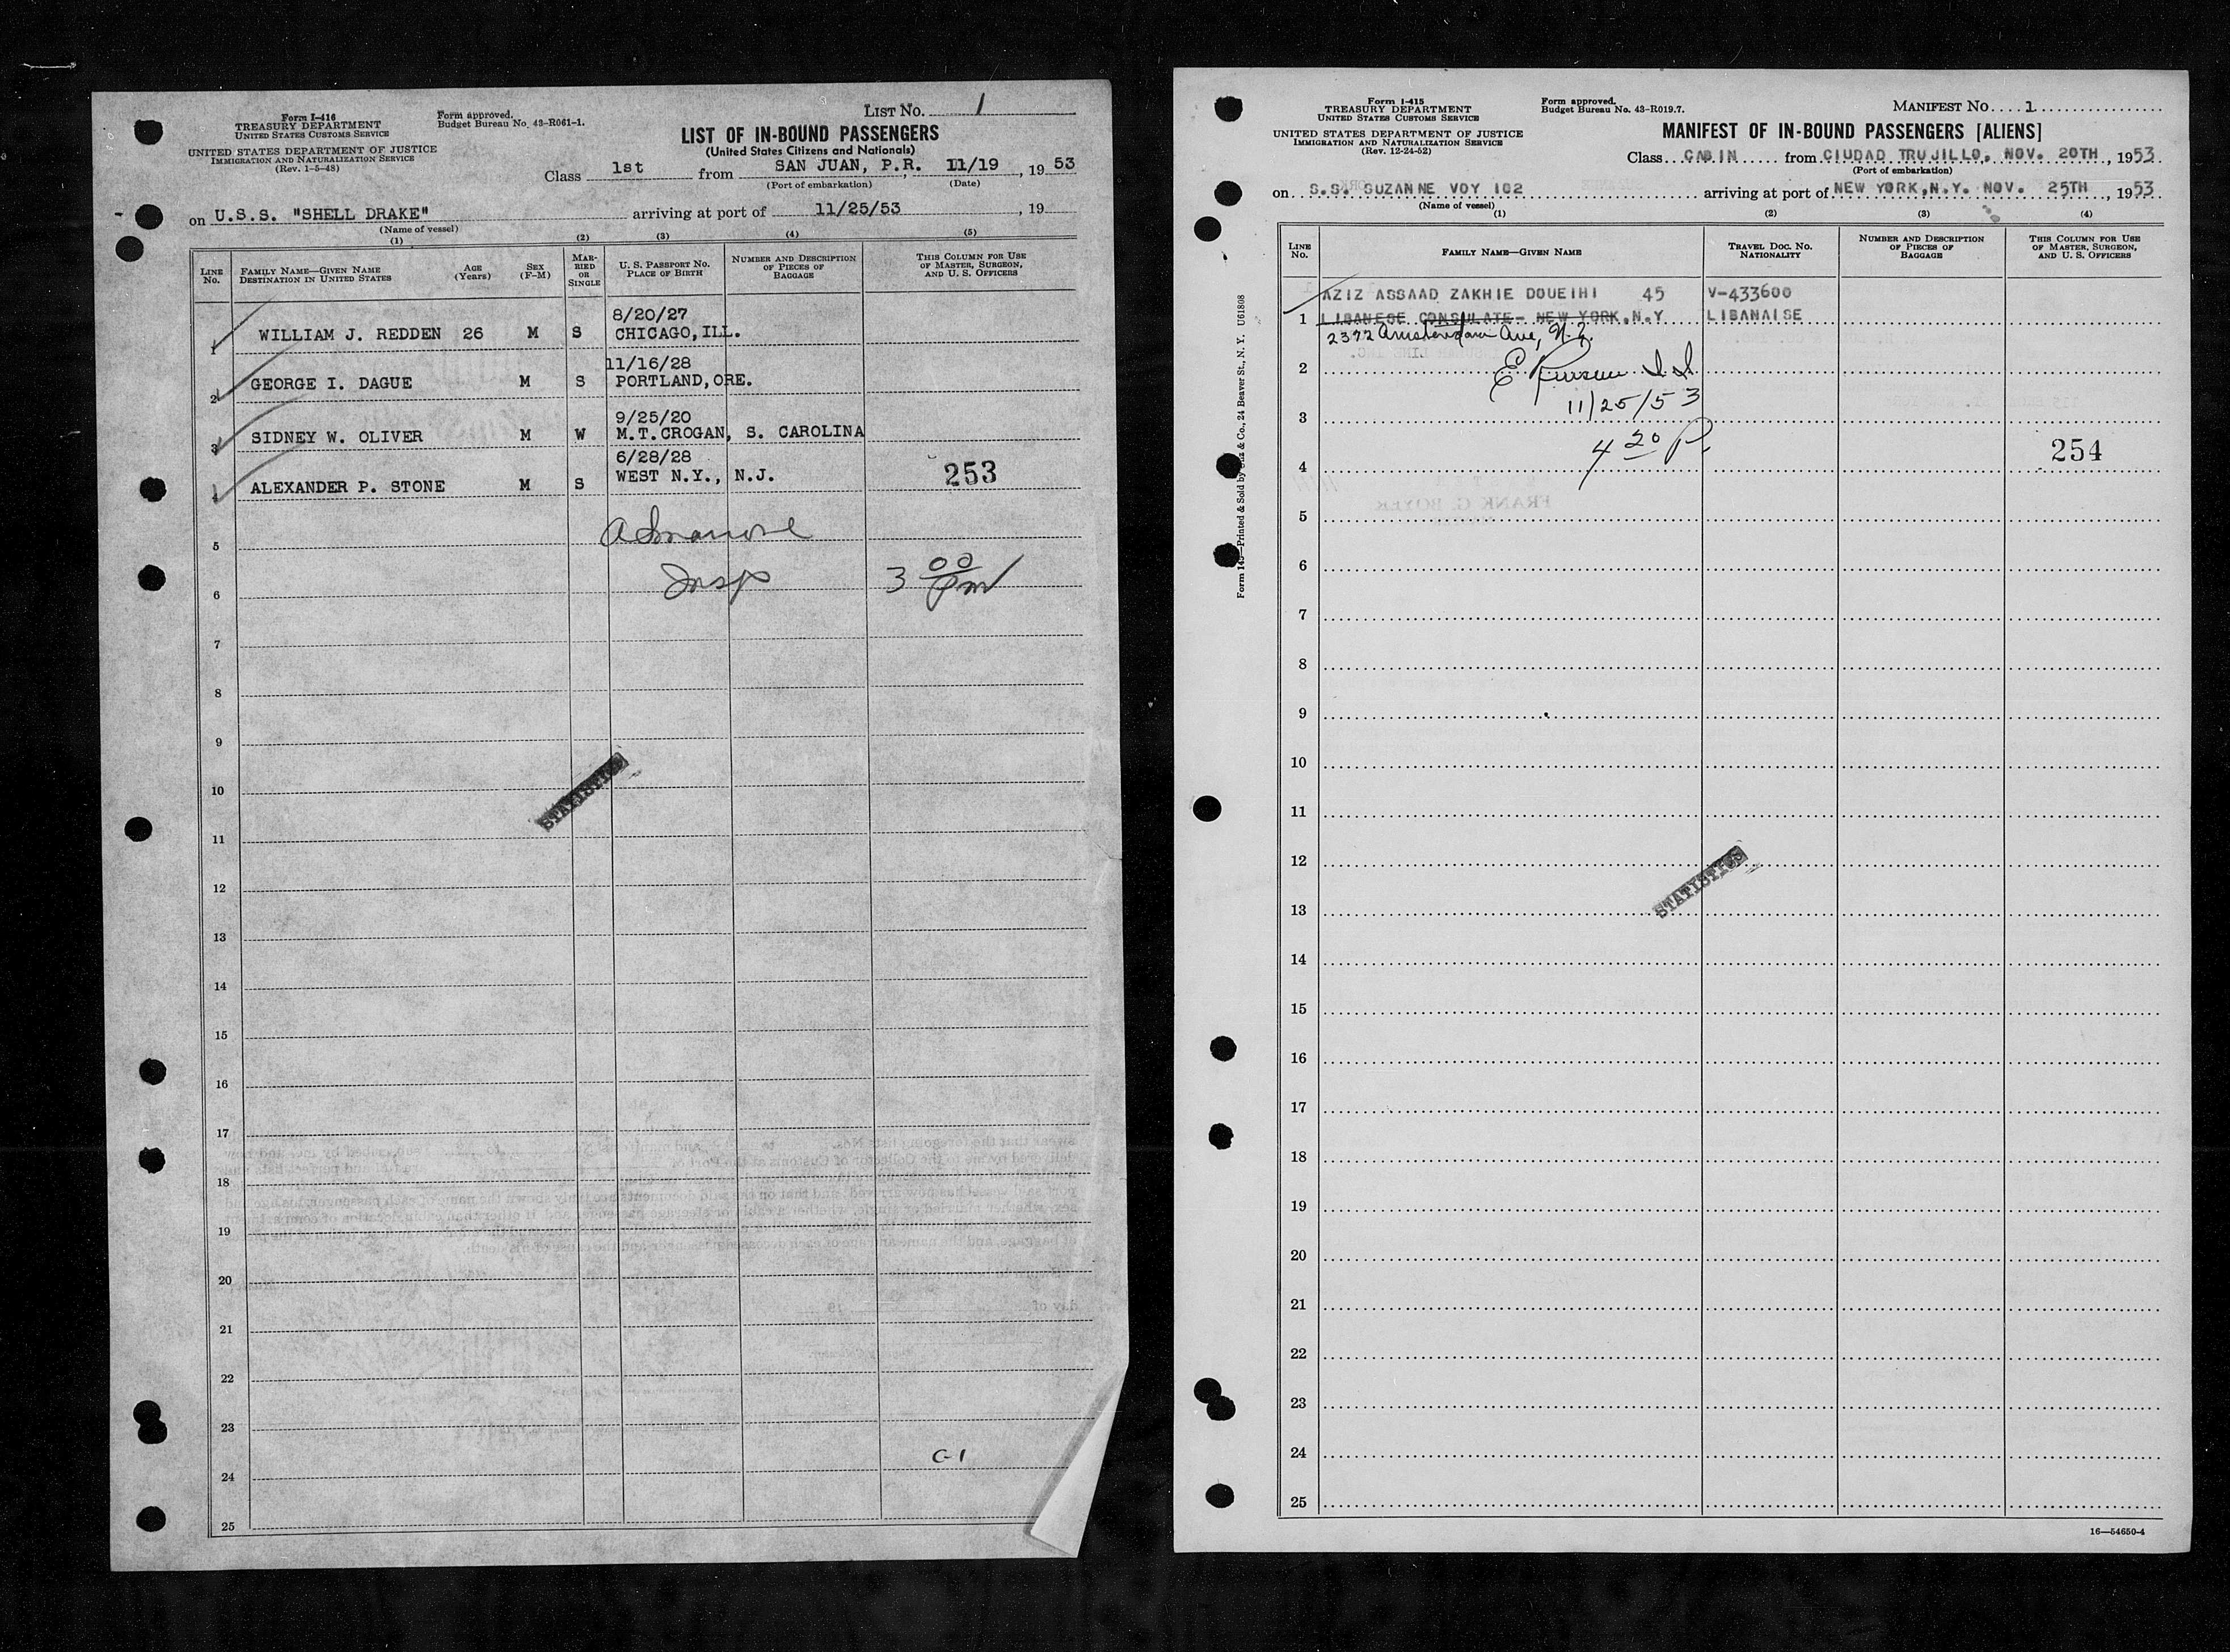 Form I-416
TREASURY DEPARTMENT
UNITED STATES CUSTOMS SERVICE
UNITED STATES DEPARTMENT OF JUSTICE
IMMIGRATION AND NATURALIZATION SERVICE
(Rev. 1-5-48)
Form approved.
Budget Bureau No. 43-R061-1.
LIST NO. 1
LIST OF IN-BOUND PASSENGERS
(United States Citizens and Nationals)
Class 1st from SAN JUAN, P.R. 11/19, 1953
(Port of embarkation) (Date)
on U.S.S. "SHELL DRAKE" arriving at port of 11/25/53, 19
(Name of vessel)
(1) (2) (3) (4) (5)
LINE No. FAMILY NAME—GIVEN NAME DESTINATION IN UNITED STATES AGE (Years) SEX (F-M) MARRIED OR SINGLE U. S. PASSPORT No. PLACE OF BIRTH NUMBER AND DESCRIPTION OF PIECES OF BAGGAGE THIS COLUMN FOR USE OF MASTER, SURGEON, AND U. S. OFFICERS
8/20/27
1 WILLIAM J. REDDEN 26 M S CHICAGO, ILL.
11/16/28
2 GEORGE I. DAGUE M S PORTLAND, ORE.
9/25/20
3 SIDNEY W. OLIVER M W M.T.CROGAN, S. CAROLINA
6/28/28
4 ALEXANDER P. STONE M S WEST N.Y., N.J. 253
5
6 Insp 3 00 pm
7
8
9
10
STATISTICS
11
12
13
14
15
16
17
18
19
20
21
22
23
C-1
24
25
Form I-415
TREASURY DEPARTMENT
UNITED STATES CUSTOMS SERVICE
UNITED STATES DEPARTMENT OF JUSTICE
IMMIGRATION AND NATURALIZATION SERVICE
(Rev. 12-24-52)
Form approved.
Budget Bureau No. 43-R019.7.
MANIFEST No. 1
MANIFEST OF IN-BOUND PASSENGERS [ALIENS]
Class CABIN from CIUDAD TRUJILLO, NOV. 20TH, 1953
(Port of embarkation)
on S.S. SUZANNE VOY 102 arriving at port of NEW YORK,N.Y. NOV. 25TH, 1953
(Name of vessel)
(1) (2) (3) (4)
LINE No. FAMILY NAME—GIVEN NAME TRAVEL DOC. NO. NATIONALITY NUMBER AND DESCRIPTION OF PIECES OF BAGGAGE THIS COLUMN FOR USE OF MASTER, SURGEON, AND U. S. OFFICERS
AZIZ ASSAAD ZAKHIE DOUEIHI 45 V-433600
1 LIBANESE CONSULATE- NEW YORK,N.Y LIBANAISE
2372 Amsterdam Ave, N.Y.
2
11/25/53
3
4 4 20 P. 254
5
6
7
8
9
10
11
12
STATISTICS
13
14
15
16
17
18
19
20
21
22
23
24
25
16—54650-4